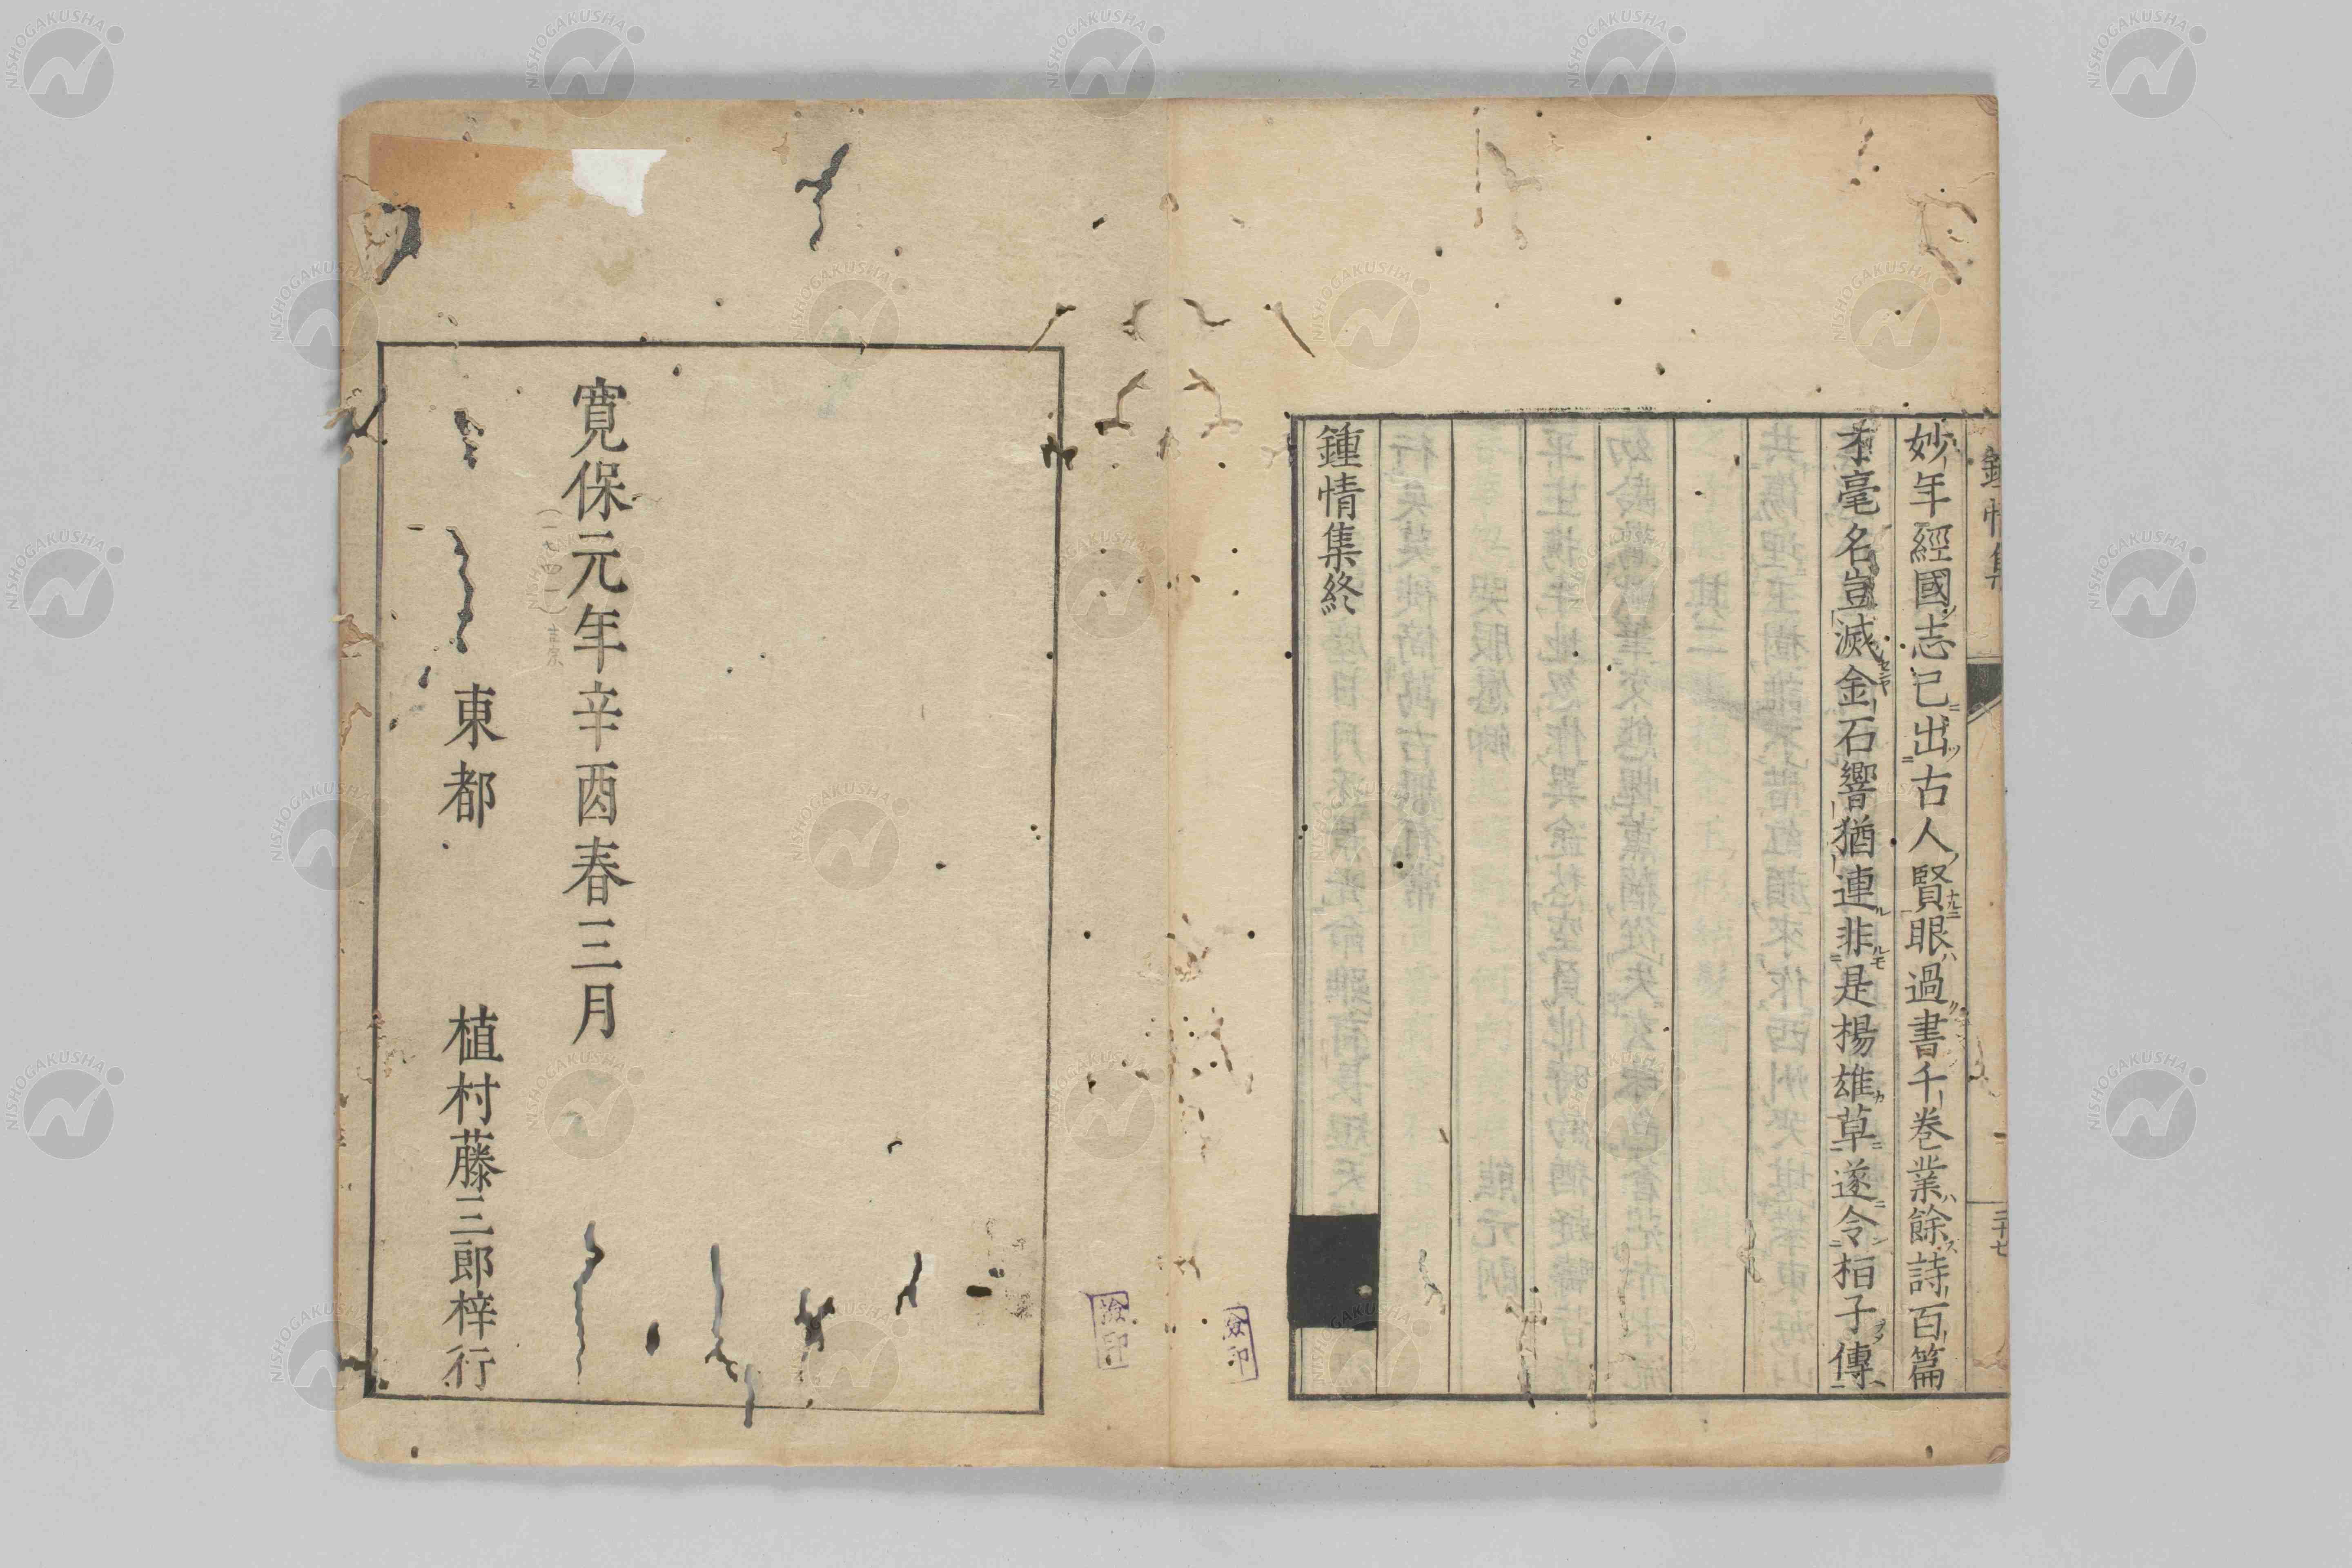 妙年經國志已出古人賢眼過書千卷業餘詩百篇
才毫名豈滅金石響猶連非是楊雄草遂令桓子傳
鍾情集終
鍾情集
三十七
寛保元年辛酉春三月
(一七四一)
吉宗
東都 植村藤三郎梓行
檢印
NISHOGAKUSHA